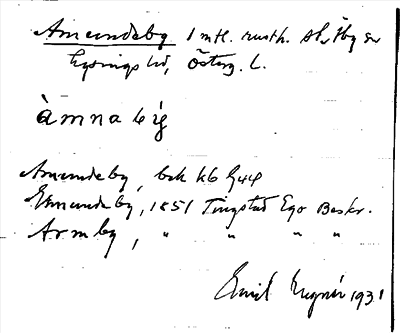 Amundeby 1 mtl. rusth. Skällby sn
Lysings hd, Österg. L.
àmnabíy
Amundeby, bok kb 944
Emundeby, 1851 Tingstad Ego Beskr.
Armby, " " " "
Emil 1931